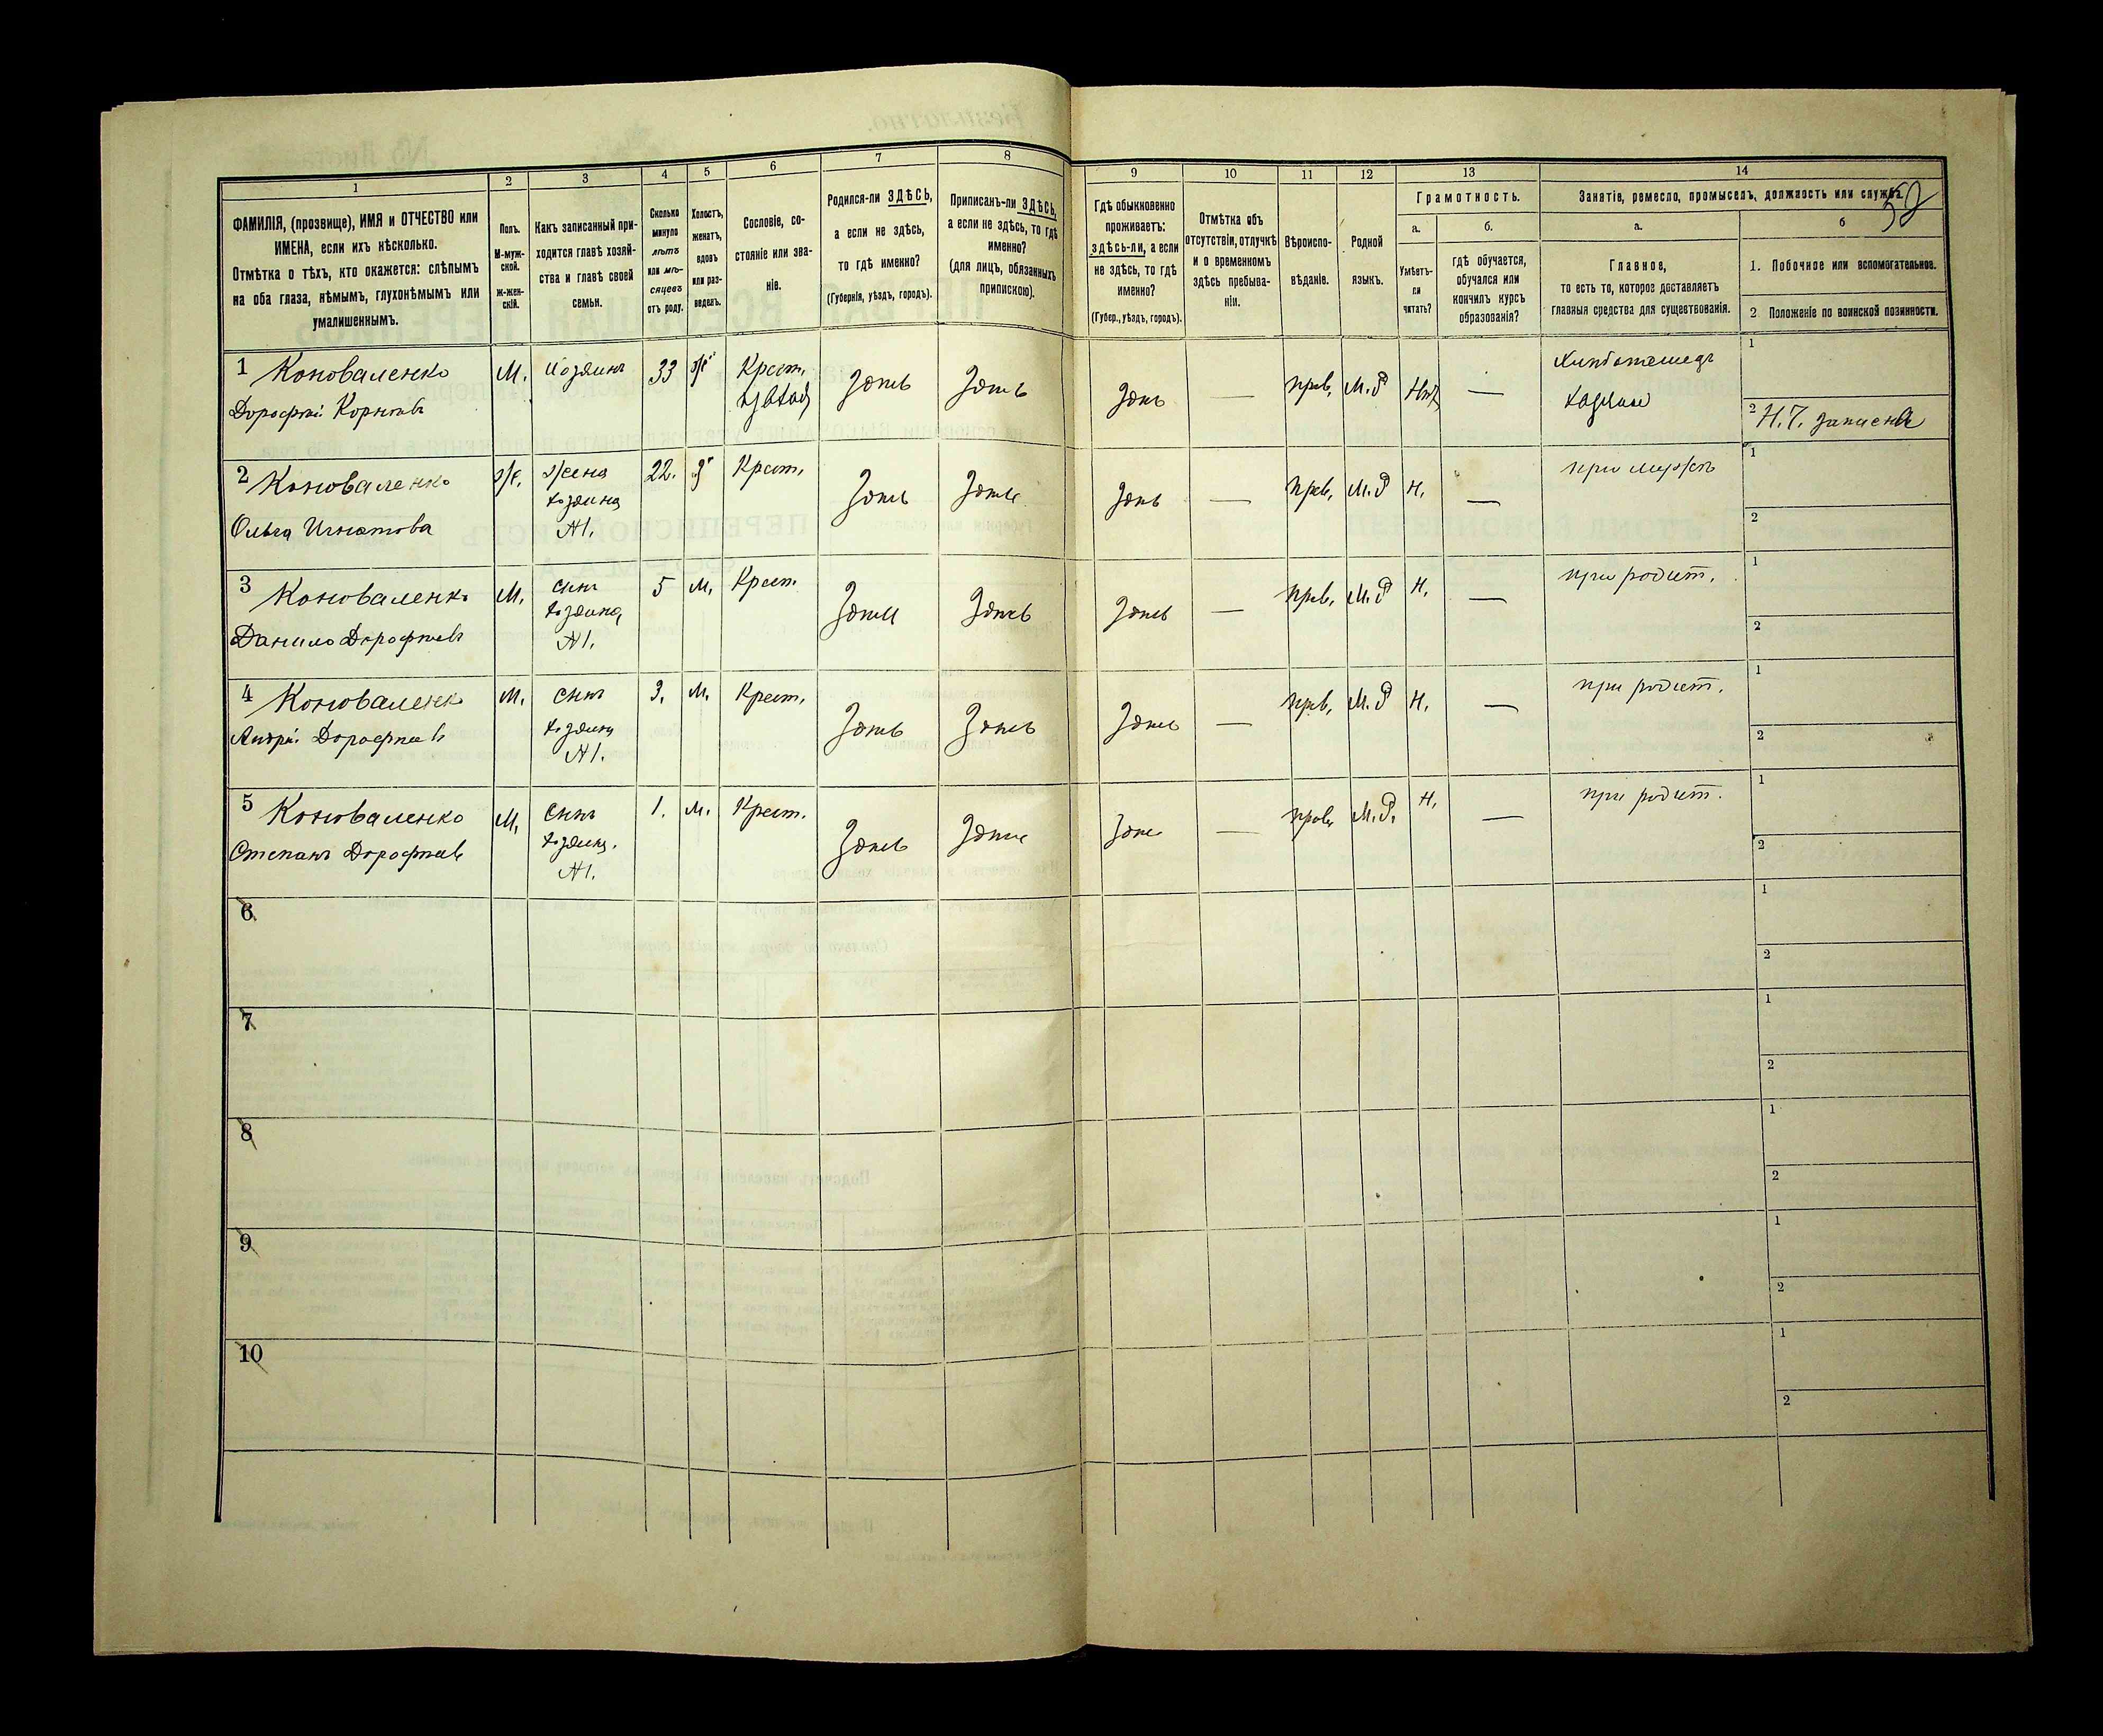 1 2 3 4 5 6 7 8 9 10 11 12 13 14
ФАМИЛІЯ, (прозвище), ИМЯ и ОТЧЕСТВО или
ИМЕНА, если ихъ нѣсколько.
Отмѣтка о тѣхъ, кто окажется: слѣпымъ
на оба глаза, нѣмымъ, глухонѣмымъ или
умалишеннымъ.
Полъ.
М-муж-
ской.
Ж-жен-
скій.
Какъ записанный при-
ходится главѣ хозяй-
ства и главѣ своей
семьи.
Сколько
минуло
лѣтъ
или мѣ-
сяцевъ
отъ роду.
Холостъ,
женатъ,
вдовъ
или раз-
веденъ.
Сословіе, со-
стояніе или зва-
ніе.
Родился-ли ЗДѢСЬ,
а если не здѣсь,
то гдѣ именно?
(Губернія, уѣздъ, городъ).
Приписанъ-ли ЗДѢСЬ,
а если не здѣсь, то гдѣ
именно?
(для лицъ, обязанныхъ
припискою).
Гдѣ обыкновенно
проживаетъ:
здѣсь-ли, а если
не здѣсь, то гдѣ
именно?
(Губер., уѣздъ, городъ).
Отмѣтка объ
отсутствіи, отлучкѣ
и о временномъ
здѣсь пребыва-
ніи.
Вѣроиспо-
вѣданіе.
Родной
языкъ.
Грамотность.
а.
Умѣетъ-
ли
читать?
б.
гдѣ обучается,
обучался или
кончилъ курсъ
образованія?
Занятіе, ремесло, промыселъ, должность или служба.
а.
Главное,
то есть то, которое доставляетъ
главныя средства для существованія.
б
1. Побочное или вспомогательное.
2 Положеніе по воинской повинности.
1 Коноваленко М. Хозяинъ 33 ж. Крест. Здѣсь Здѣсь Здѣсь — прав. М.Р. Нѣтъ — Хлѣбопашецъ 1
Дорофѣй Корнѣевъ Хозяинъ 2 Н.Т. записи
2 Коноваленко ж. жена 22. З. Крест. Здѣсь Здѣсь Здѣсь — прав. М.Р. Н. — при мужѣ 1
Ольга Игнатова хозяина 2
№ 1.
3 Коноваленко М. сынъ 5 М. Крест. Здѣсь Здѣсь Здѣсь — прав. М.Р. Н. — при родит. 1
Данило Дорофѣевъ хозяина 2
№ 1.
4 Коноваленко М. сынъ 3. М. Крест. Здѣсь Здѣсь Здѣсь — прав. М.Р. Н. — при родит. 1
Андрей Дорофѣевъ хозяина 2
№ 1.
5 Коноваленко М. сынъ 1. М. Крест. Здѣсь Здѣсь Здѣсь — прав. М.Р. Н. — при родит. 1
Степанъ Дорофѣевъ хозяина. 2
№ 1.
6 1
2
7 1
2
8 1
2
9 1
2
10 1
2